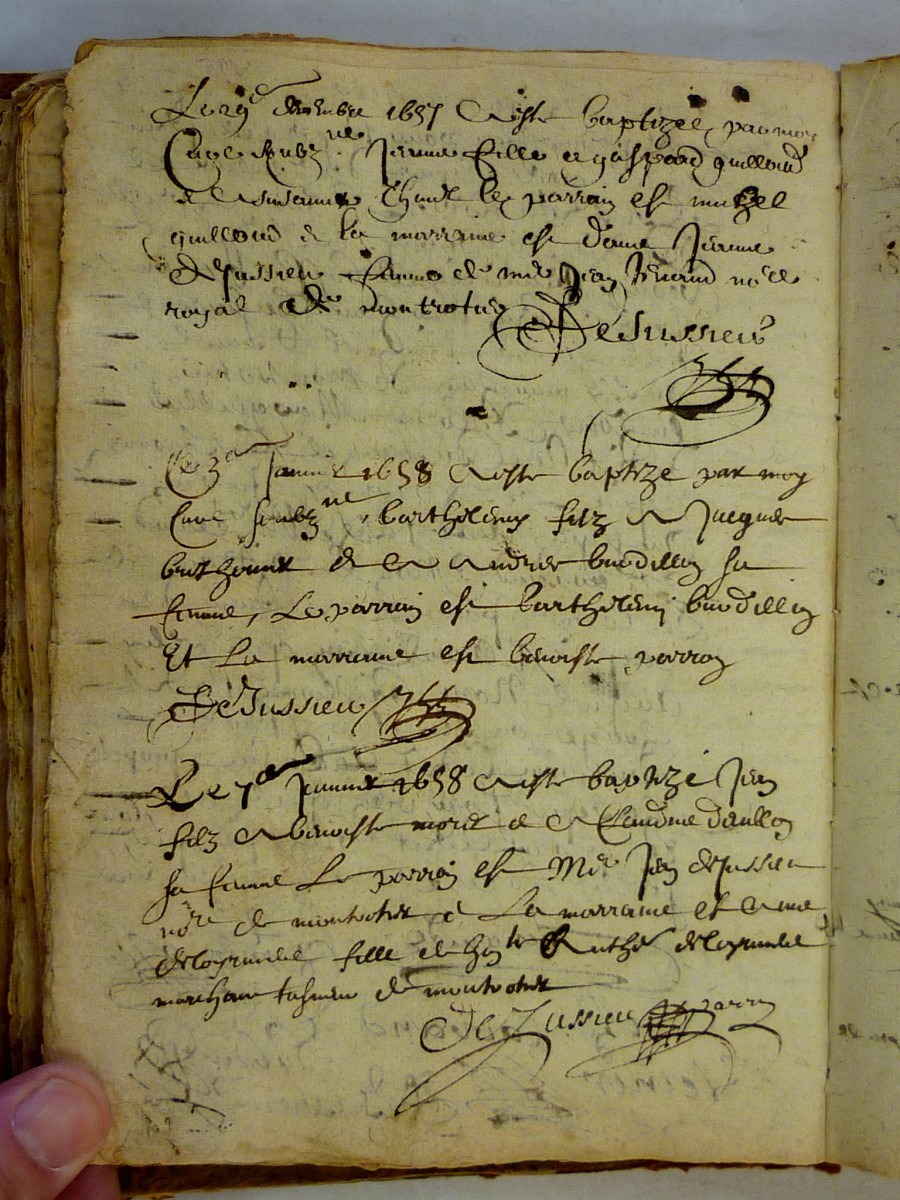 Le 29e decembre 1657 A esté baptizée par moy
Curé soubzné Jeanne fille de gaspard guilloud
de le parrain est michel
guilloud & la marraine est dame Jeanne
DeJussieu femme de me Jean nore
royal de montrotier DeJussieu
Ce 3e Janvier 1658 A esté baptize par moy
Curé soubzné bartholemy filz A Jacques
& A Andree burdillon sa
femme, Le parrain est bartholemy burdillon
Et La marraine est benoiste parron
DeJussieu
Le 7e Janvier 1658 A esté baptizé Jean
filz A benoist & A Claudine
sa femme Le parrain est Me Jean deJussieu
nore de montrotier & La marraine est Anne
fille de hon
marchant de montrotier
DeJussieu parrin